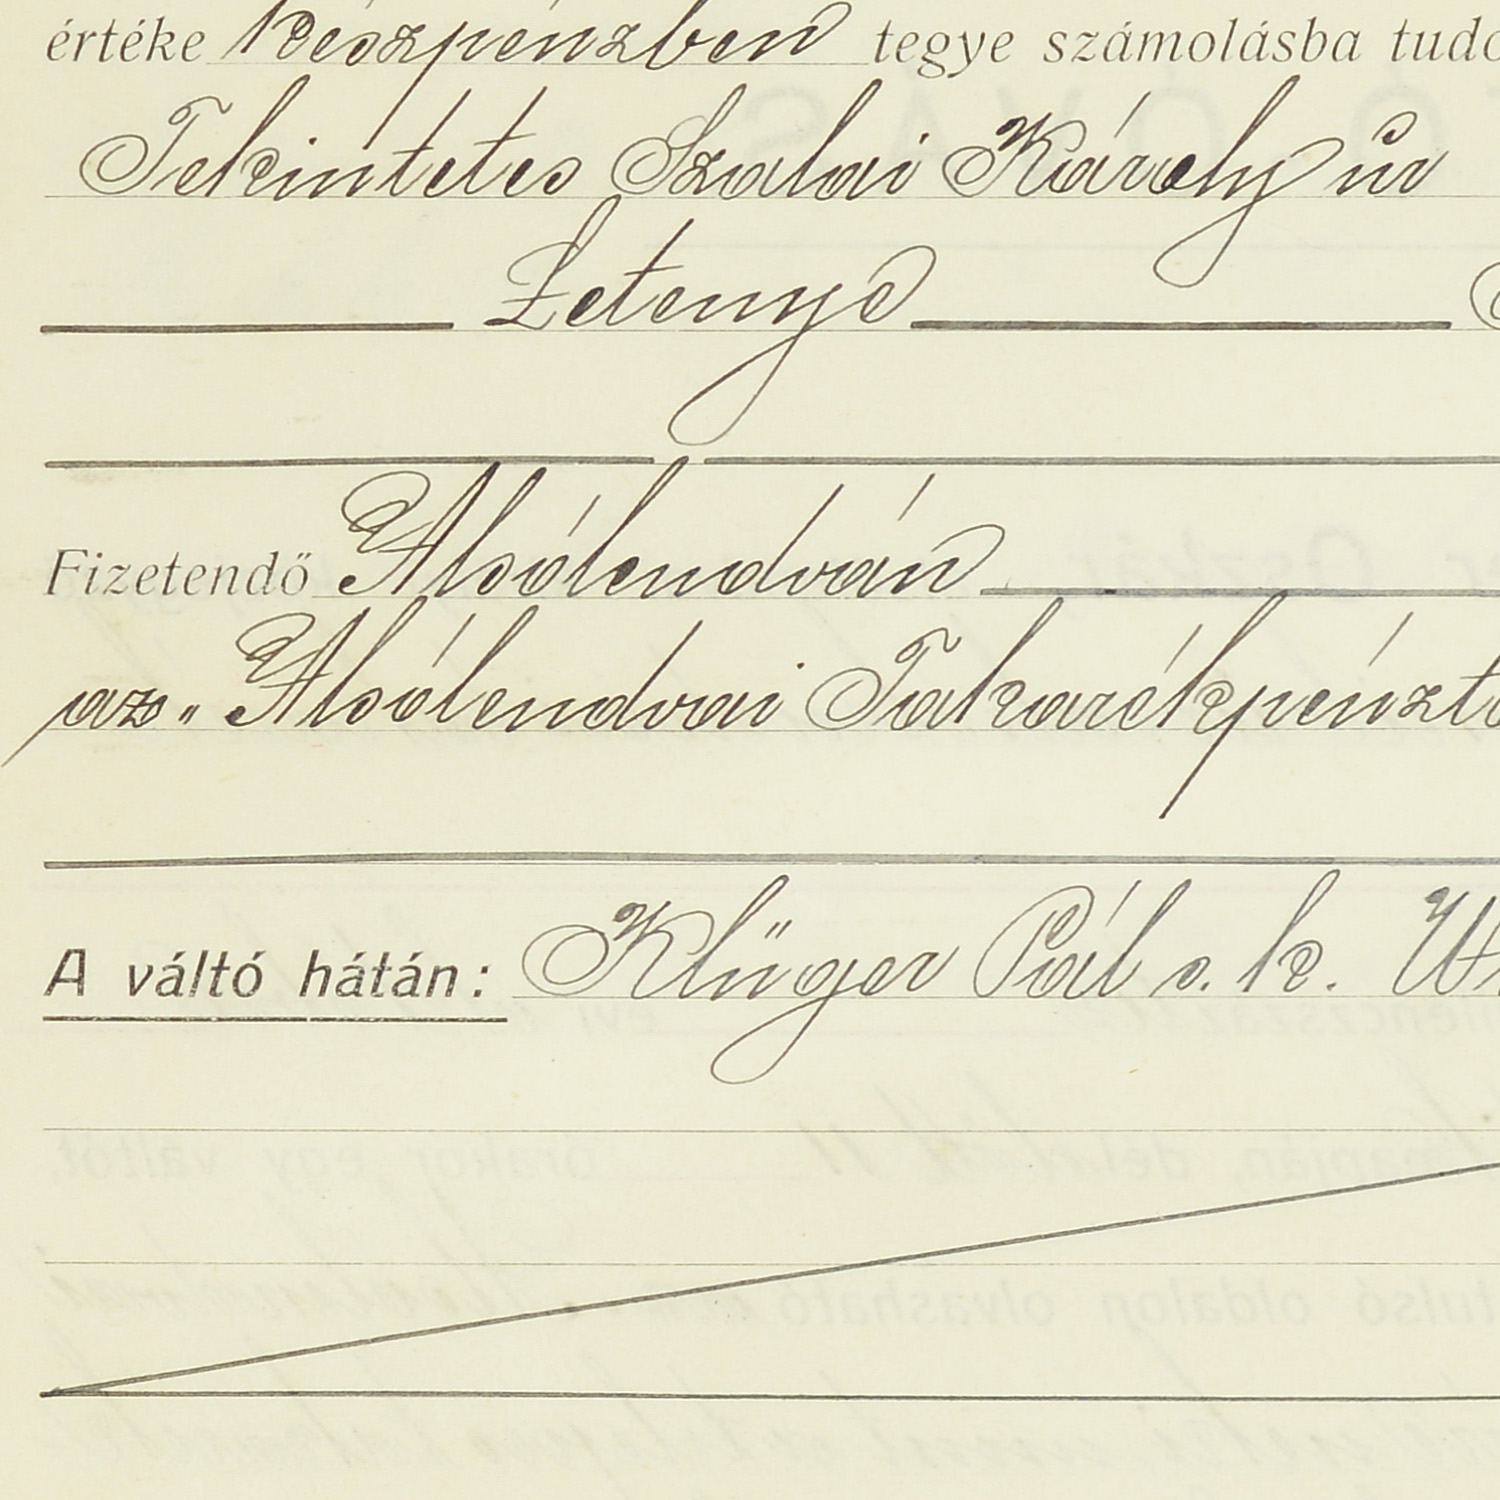 értéke készpénzben tegye számolásba
Tekintetes Szalai Károly úr
Letenye
Fizetendő Alsólendván
az „Alsólendvai Takarékpénztá
A váltó hátán: Klüger Pál s. k.